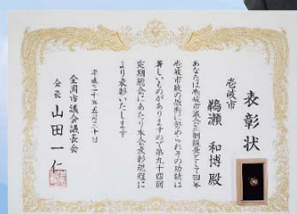 表彰状
壱岐市
鵜瀬 和博殿
あなたは壱岐市議会の副議長として四年
壱岐市政の振興に努められその功績は
著しいものがありますので第九十回
定期総会にあたり本会表彰規程に
より表彰いたします
全国市議会議長会
会長 山田一仁